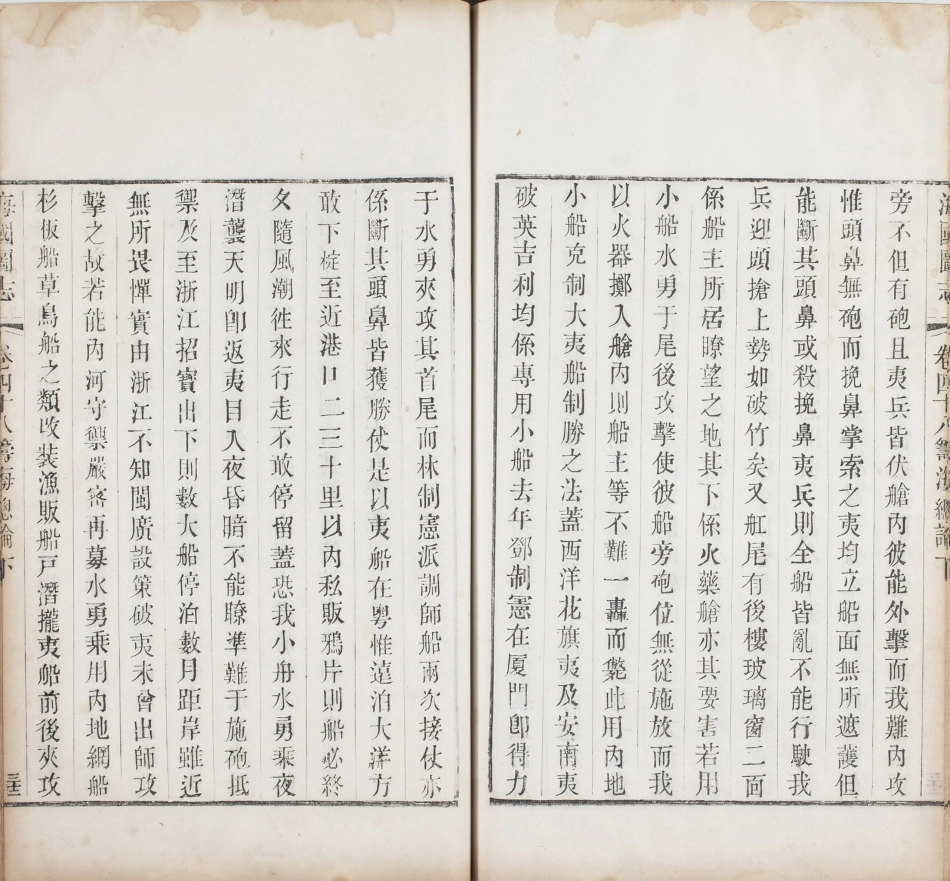 海國圖志
卷四十八籌海總論下
旁不但有砲且夷兵皆伏艙內彼能外擊而我難內攻
惟頭鼻無砲而挽鼻掌索之夷均立船面無所遮護但
能斷其頭鼻或殺挽鼻夷兵則全船皆亂不能行駛我
兵迎頭搶上勢如破竹矣又舡尾有後樓玻璃窗二面
係船主所居瞭望之地其下係火藥艙亦其要害若用
小船水勇于尾後攻擊使彼船旁砲位無從施放而我
以火器擲入艙內則船主等不難一轟而斃此用內地
小船克制大夷船制勝之法蓋西洋花旗夷及安南夷
破英吉利均係專用小船去年鄧制憲在厦門卽得力
于水勇夾攻其首尾而林制憲派調師船兩次接仗亦
係斷其頭鼻皆獲勝仗是以夷船在粵惟遠泊大洋方
敢下椗至近港口二三十里以內私販鴉片則船必終
夕隨風潮徃來行走不敢停留蓋恐我小舟水勇乘夜
潛襲天明卽返夷目入夜昏暗不能瞭準難于施砲抵
禦及至浙江招寶出下則數大船停泊數月距岸雖近
無所畏憚實由浙江不知閩廣設策破夷未曾出師攻
擊之故若能內河守禦嚴密再募水勇乘用內地網船
杉板船草鳥船之類改裝漁販船戶潛攏夷船前後夾攻
海國圖志
卷四十八籌海總論下
三